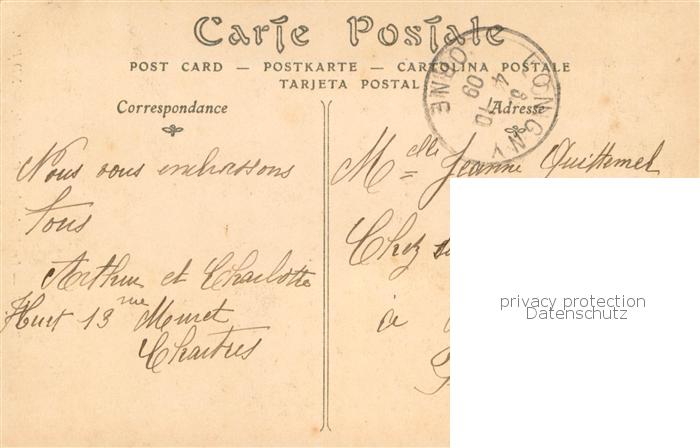 Carte Postale
POST CARD — POSTKARTE — CARTOLINA POSTALE
TARJETA POSTAL
ORNE
4-10
09
Correspondance
Adresse
Nous vous embrassons
tous
Arthur et Charlotte
Huet 13 rue Muret
Chartres
Melle Jeanne Quittemel
Chez
à
privacy protection
Datenschutz